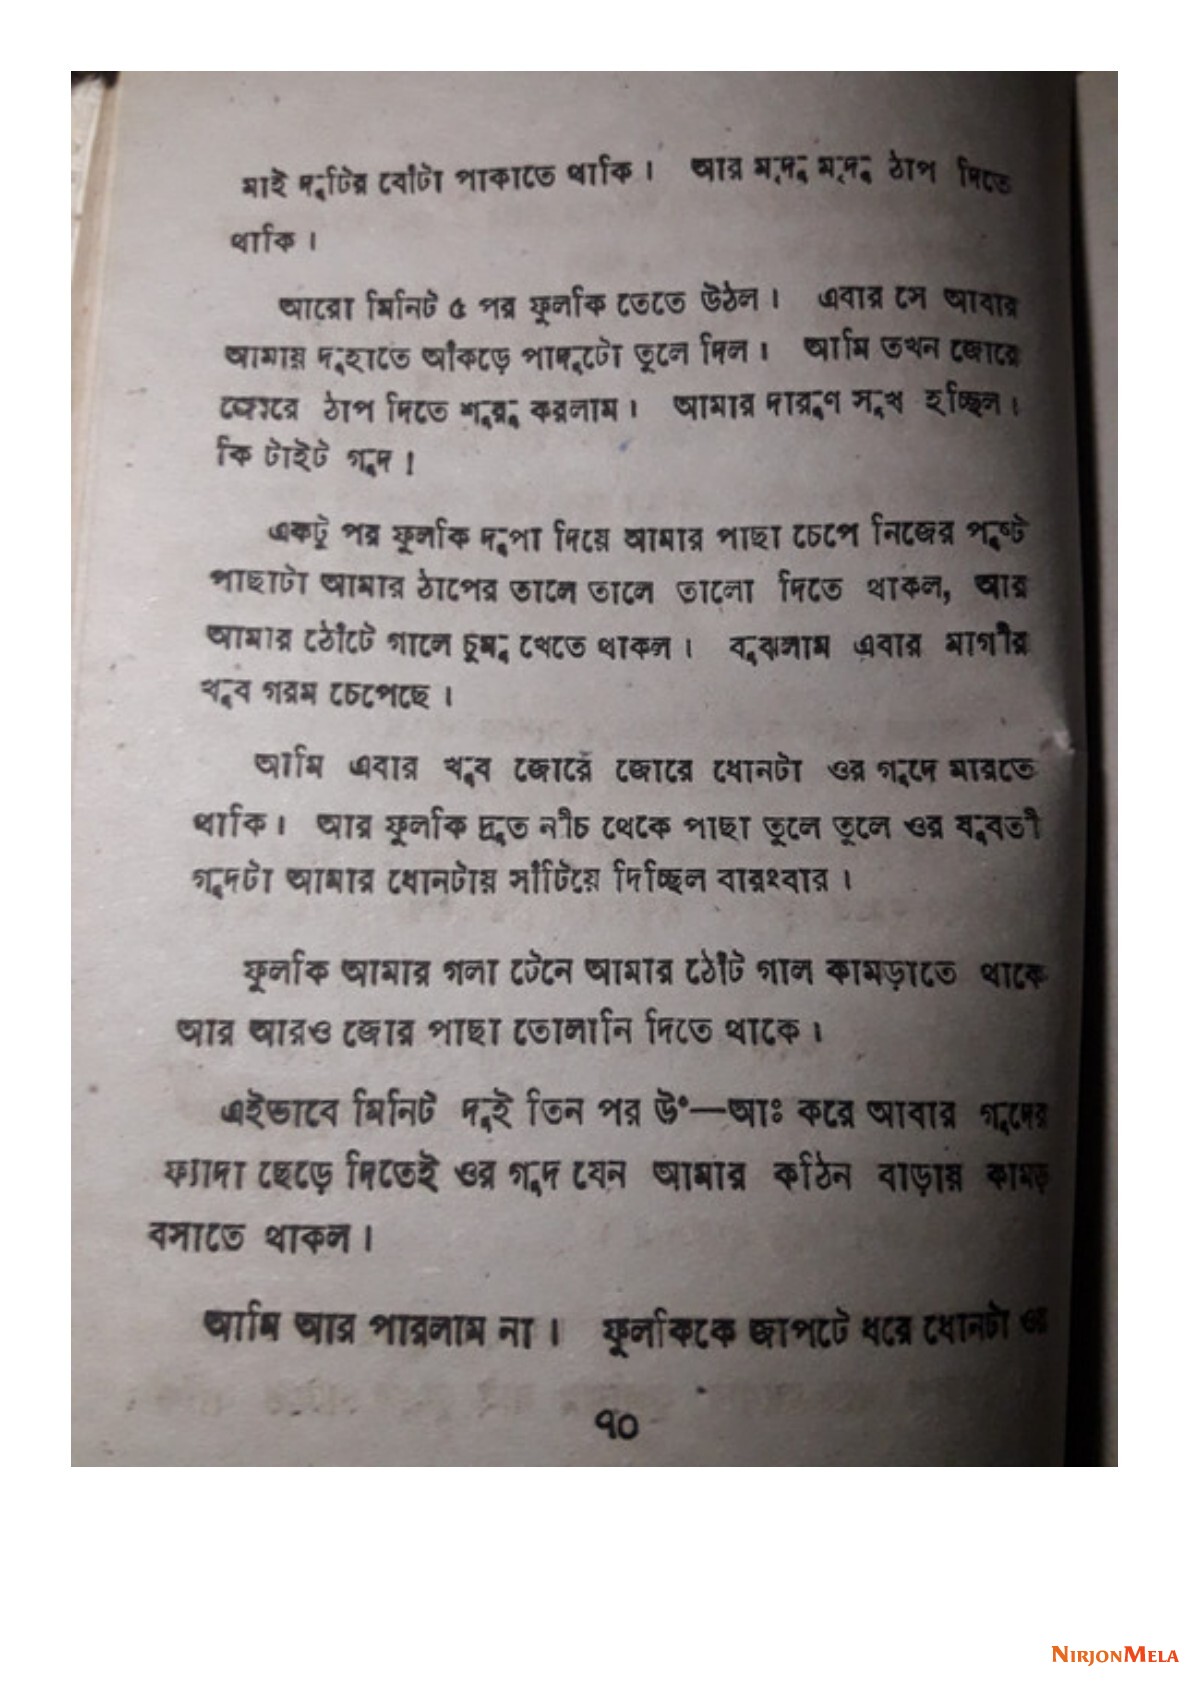 মাই দুটির বোঁটা পাকাতে থাকি। আর মৃদু মৃদু ঠাপ দিতে
থাকি।
আরো মিনিট ৫ পর ফুলকি তেতে উঠল। এবার সে আবার
আমায় দুহাতে আঁকড়ে পাদুটো তুলে দিল। আমি তখন জোরে
জোরে ঠাপ দিতে শুরু করলাম। আমার দারুণ সুখ হচ্ছিল।
কি টাইট গুদ!
একটু পর ফুলকি দুপা দিয়ে আমার পাছা চেপে নিজের পুষ্ট
পাছাটা আমার ঠাপের তালে তালে তালো দিতে থাকল, আর
আমার ঠোঁটে গালে চুমু খেতে থাকল। বুঝলাম এবার মাগীর
খুব গরম চেপেছে।
আমি এবার খুব জোরে জোরে ধোনটা ওর গুদে মারতে
থাকি। আর ফুলকি দ্রুত নীচ থেকে পাছা তুলে তুলে ওর যুবতী
গুদটা আমার ধোনটায় সাঁটিয়ে দিচ্ছিল বারংবার।
ফুলকি আমার গলা টেনে আমার ঠোঁট গাল কামড়াতে থাকে
আর আরও জোর পাছা তোলানি দিতে থাকে।
এইভাবে মিনিট দুই তিন পর উঁ—আঃ করে আবার গুদের
ফ্যাদা ছেড়ে দিতেই ওর গুদ যেন আমার কঠিন বাড়ায় কামড়
বসাতে থাকল।
আমি আর পারলাম না। ফুলকিকে জাপটে ধরে ধোনটা ওর
৭০
NIRJONMELA